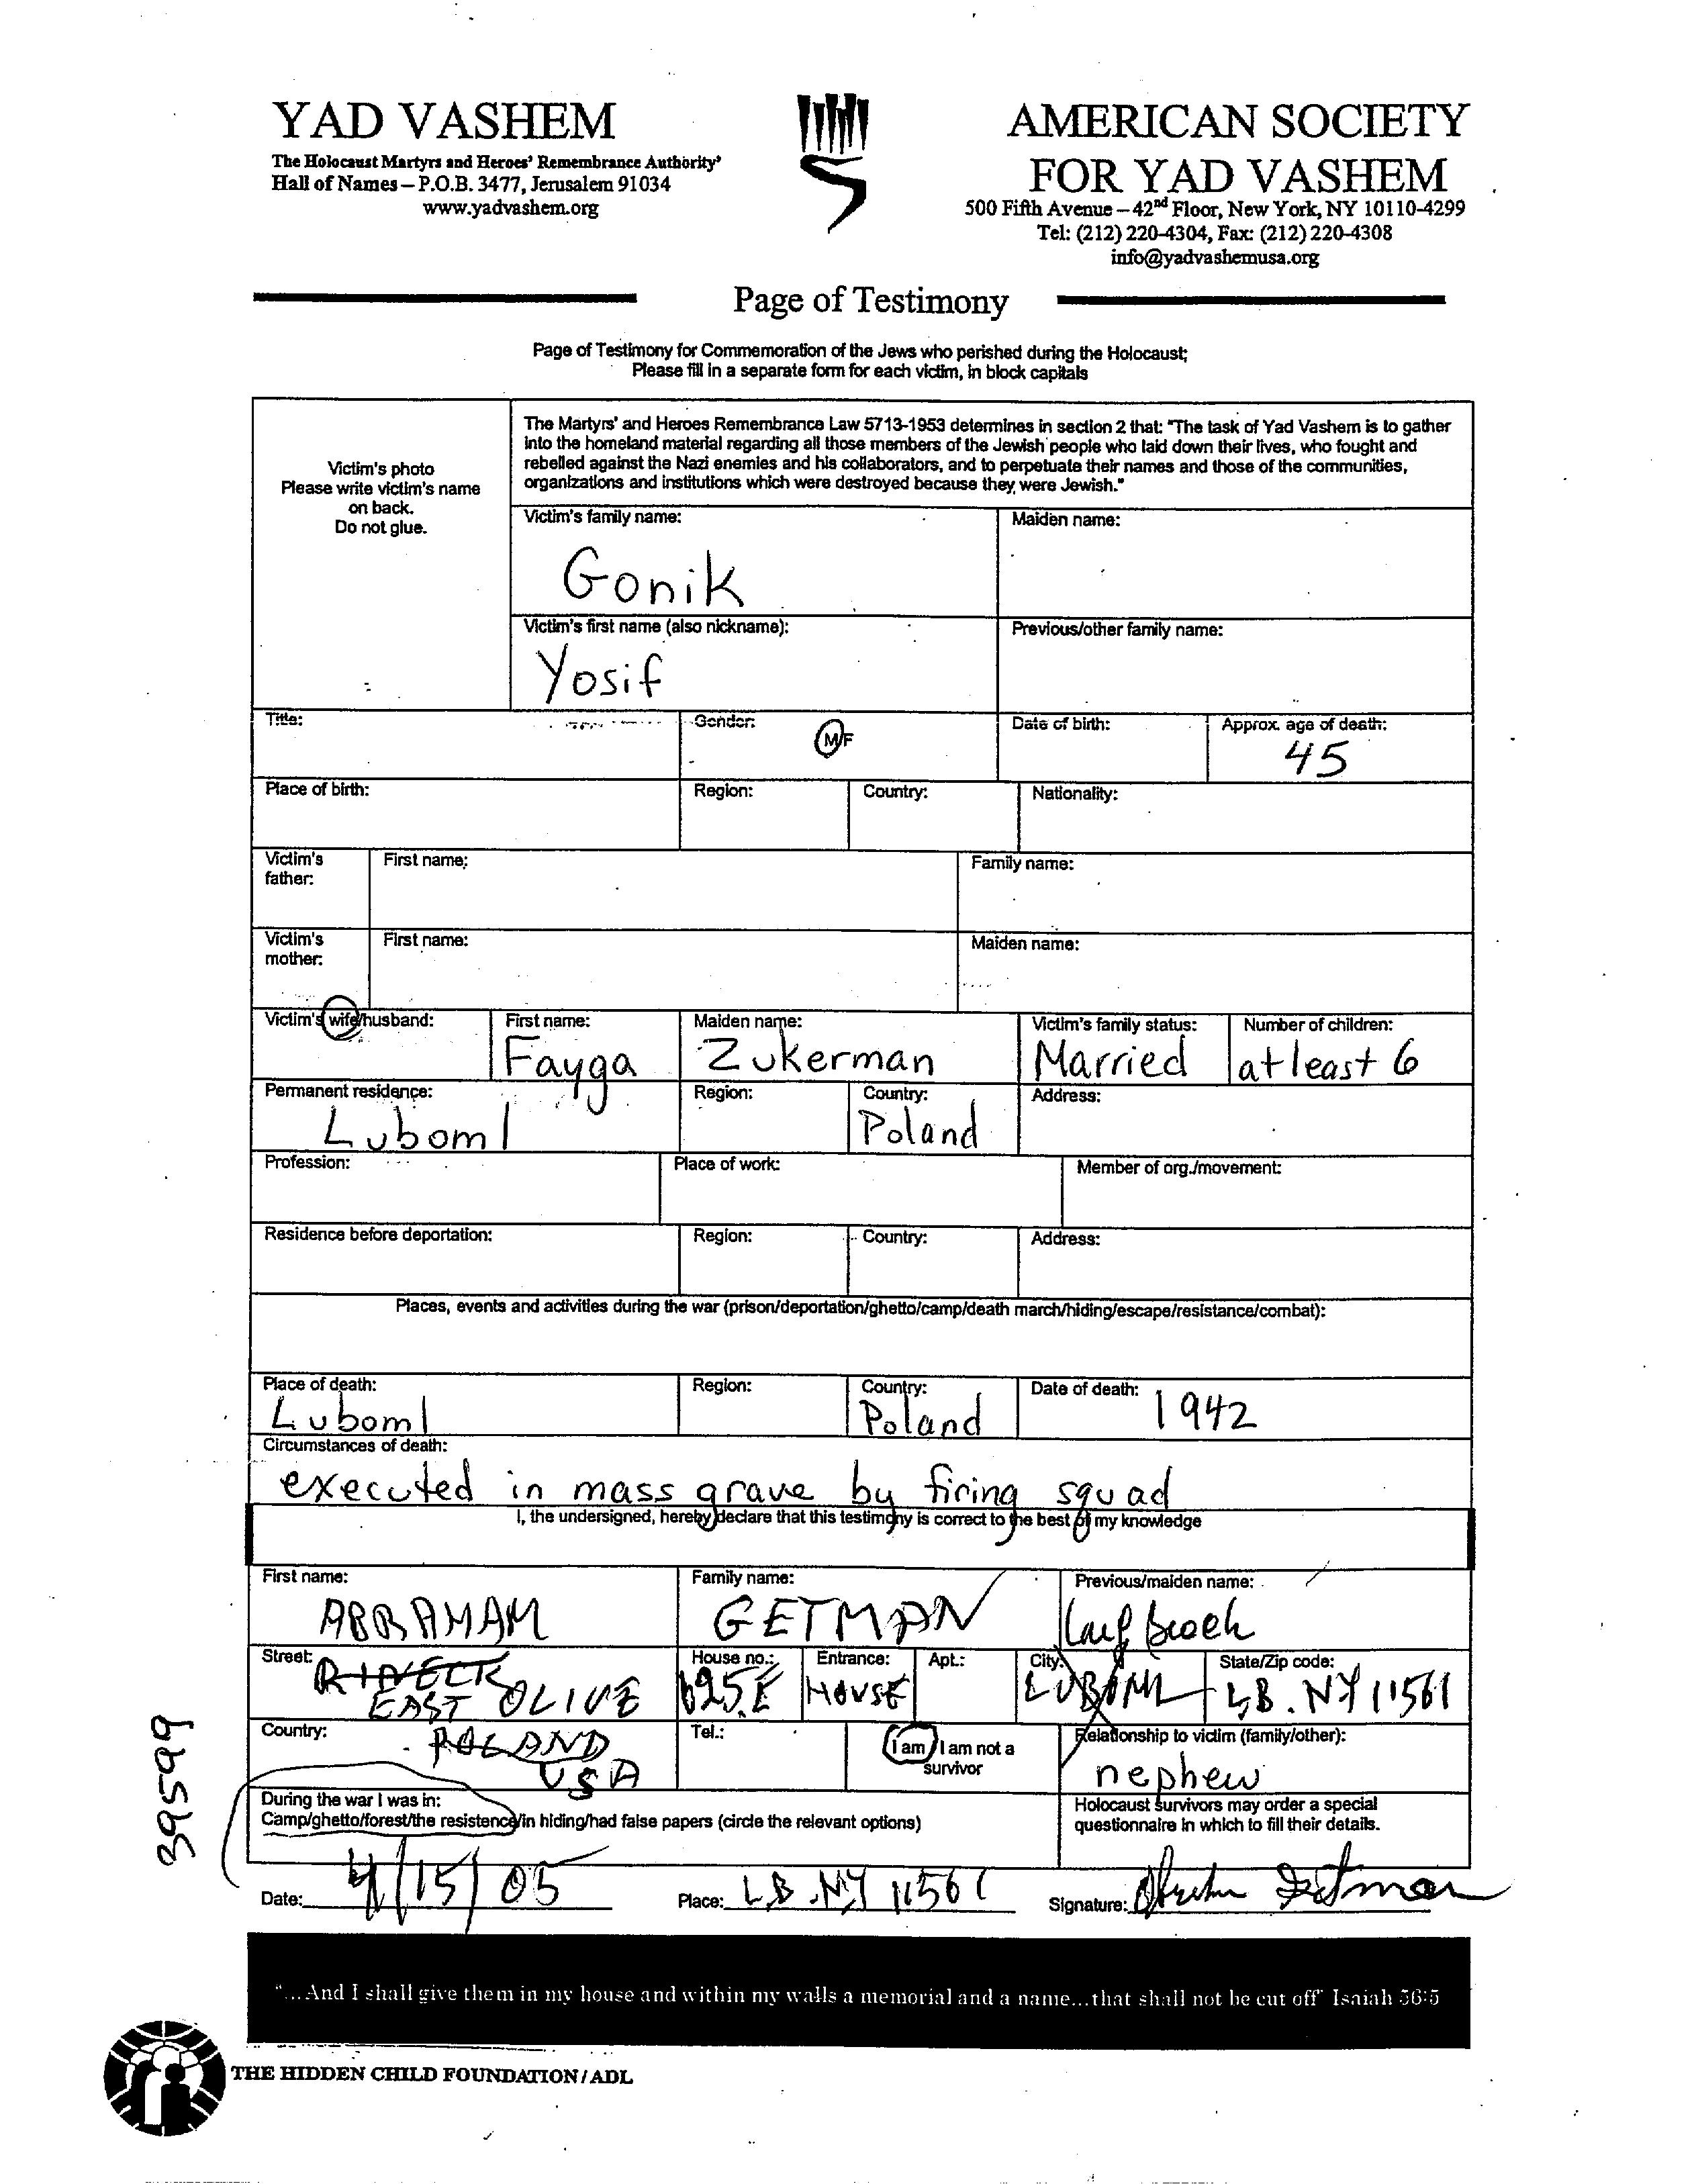 YAD VASHEM
The Holocaust Martyrs and Heroes' Remembrance Authority'
Hall of Names – P.O.B. 3477, Jerusalem 91034
www.yadvashem.org
AMERICAN SOCIETY
FOR YAD VASHEM
500 Fifth Avenue – 42nd Floor, New York, NY 10110-4299
Tel: (212) 220-4304, Fax: (212) 220-4308
info@yadvashemusa.org
Page of Testimony
Page of Testimony for Commemoration of the Jews who perished during the Holocaust;
Please fill in a separate form for each victim, in block capitals
Victim's photo
Please write victim's name
on back.
Do not glue.
The Martyrs' and Heroes Remembrance Law 5713-1953 determines in section 2 that: "The task of Yad Vashem is to gather
into the homeland material regarding all those members of the Jewish people who laid down their lives, who fought and
rebelled against the Nazi enemies and his collaborators, and to perpetuate their names and those of the communities,
organizations and institutions which were destroyed because they were Jewish."
Victim's family name: Maiden name:
Gonik
Victim's first name (also nickname): Previous/other family name:
Yosif
Title: Gender: M/F Date of birth: Approx. age of death:
45
Place of birth: Region: Country: Nationality:
Victim's father: First name: Family name:
Victim's mother: First name: Maiden name:
Victim's wife/husband: First name: Maiden name: Victim's family status: Number of children:
Fayga Zukerman Married at least 6
Permanent residence: Region: Country: Address:
Luboml Poland
Profession: Place of work: Member of org./movement:
Residence before deportation: Region: Country: Address:
Places, events and activities during the war (prison/deportation/ghetto/camp/death march/hiding/escape/resistance/combat):
Place of death: Region: Country: Date of death:
Luboml Poland 1942
Circumstances of death:
executed in mass grave by firing squad
I, the undersigned, hereby declare that this testimony is correct to the best of my knowledge
First name: Family name: Previous/maiden name:
ABRAHAM GETMAN
Street: House no.: Entrance: Apt.: City: State/Zip code:
EAST OLIVE 625.E HOUSE LUBOML LB. NY 11561
Country: Tel.: I am / I am not a survivor Relationship to victim (family/other):
POLAND
USA nephew
During the war I was in:
Camp/ghetto/forest/the resistence/in hiding/had false papers (circle the relevant options)
Holocaust survivors may order a special
questionnaire in which to fill their details.
Date: 4/15/05 Place: L.B. NY 11561 Signature: Getman
39599
"...And I shall give them in my house and within my walls a memorial and a name...that shall not be cut off" Isaiah 56:5
THE HIDDEN CHILD FOUNDATION / ADL